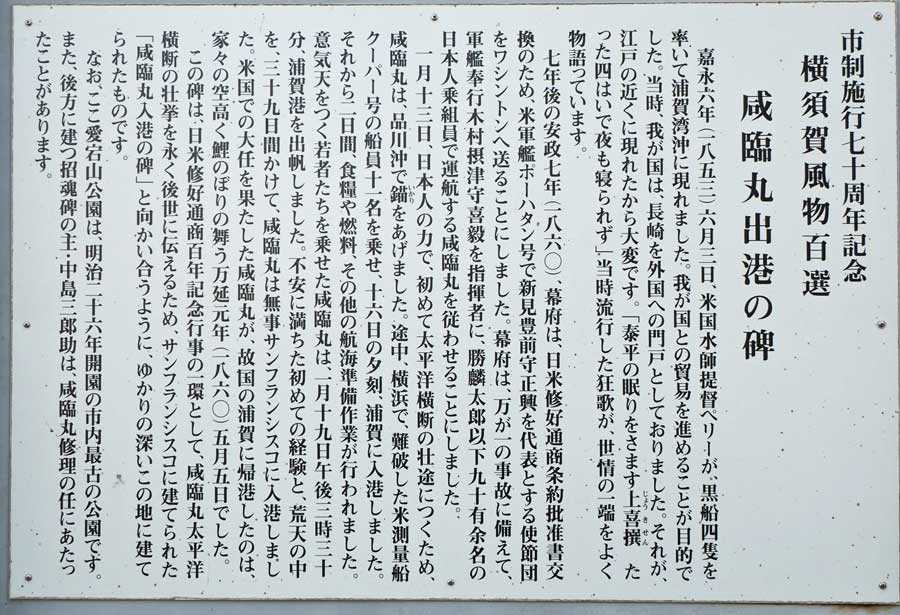 市制施行七十周年記念
横須賀風物百選
咸臨丸出港の碑
嘉永六年(一八五三)六月三日、米国水師提督ペリーが、黒船四隻を
率いて浦賀湾沖に現れました。我が国との貿易を進めることが目的で
した。当時、我が国は、長崎を外国への門戸としておりました。それが、
江戸の近くに現れたから大変です。「泰平の眠りをさます上喜撰 た
じょうきせん
った四はいで夜も寝られず」当時流行した狂歌が、世情の一端をよく
物語っています。
七年後の安政七年(一八六〇)、幕府は、日米修好通商条約批准書交
換のため、米軍艦ポーハタン号で新見豊前守正興を代表とする使節団
をワシントンへ送ることにしました。幕府は、万が一の事故に備えて、
軍艦奉行木村摂津守喜毅を指揮者に、勝麟太郎以下九十有余名の
日本人乗組員で運航する咸臨丸を従わせることにしました。
一月十三日、日本人の力で、初めて太平洋横断の壮途につくため、
咸臨丸は、品川沖で錨をあげました。途中、横浜で、難破した米測量船
いかり
クーパー号の船員十一名を乗せ、十六日の夕刻、浦賀に入港しました。
それから二日間、食糧や燃料、その他の航海準備作業が行われました。
意気天をつく若者たちを乗せた咸臨丸は、一月十九日午後三時三十
分、浦賀港を出帆しました。不安に満ちた初めての経験と、荒天の中
を、三十九日間かけて、咸臨丸は無事サンフランシスコに入港しまし
た。米国での大任を果たした咸臨丸が、故国の浦賀に帰港したのは、
家々の空高く鯉のぼりの舞う万延元年(一八六〇)五月五日でした。
この碑は、日米修好通商百年記念行事の一環として、咸臨丸太平洋
横断の壮挙を永く後世に伝えるため、サンフランシスコに建てられた
「咸臨丸入港の碑」と向かい合うように、ゆかりの深いこの地に建て
られたものです。
なお、ここ愛宕山公園は、明治二十六年開園の市内最古の公園です。
また、後方に建つ招魂碑の主・中島三郎助は、咸臨丸修理の任にあたっ
たことがあります。